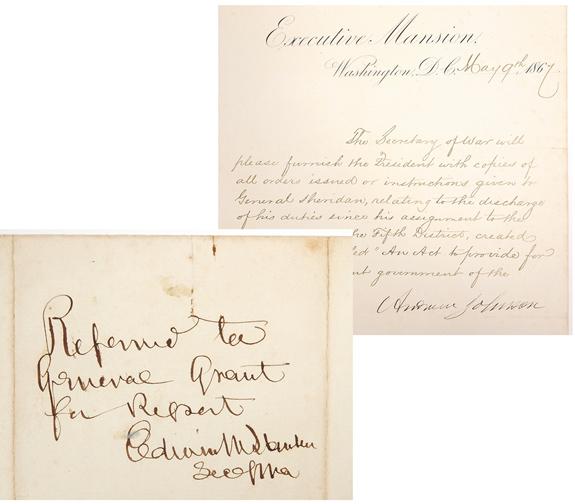 Executive Mansion,
Washington, D.C. May 9th, 1867.
The Secretary of War will
please furnish the President with copies of
all orders issued or instructions given to
General Sheridan, relating to the discharge
of his duties since his assignment to the
Fifth District, created
An Act to provide for
government of the
Andrew Johnson
Referred to
General Grant
for Report
Edwin M Stanton
Sec of War